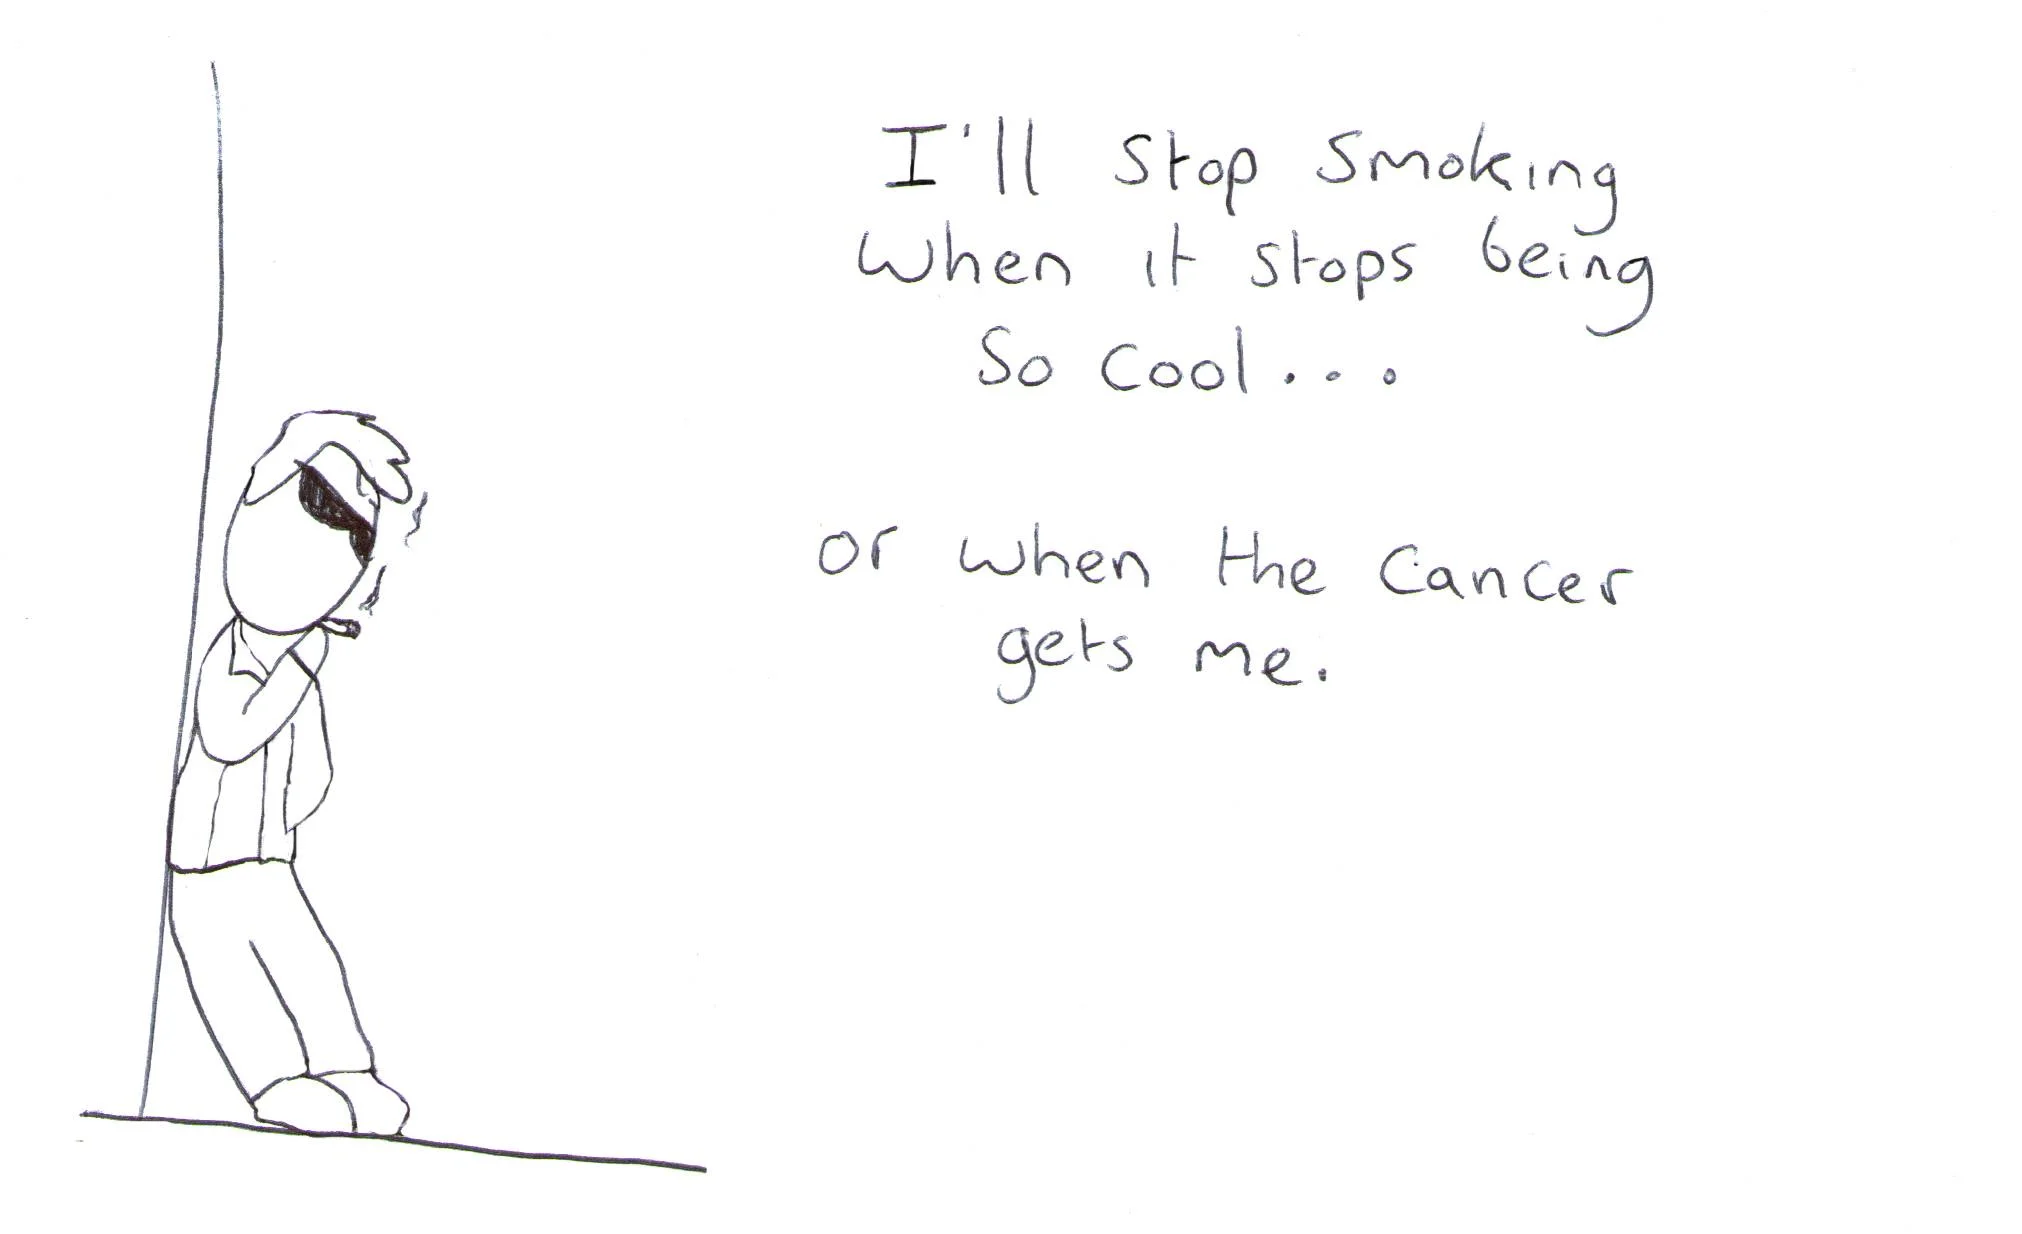 I'll stop smoking
when it stops being
so cool...
or when the cancer
gets me.